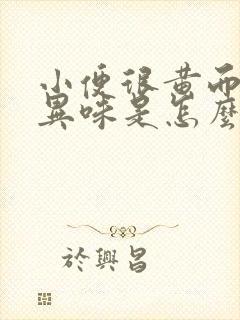 小便很黄而
異味是怎麼
於興昌